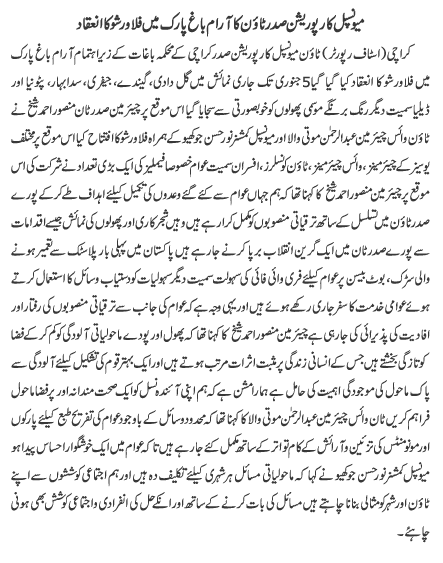 میونسپل کارپوریشن صدر ٹاؤن کا آرام باغ پارک میں فلاور شو کا انعقاد
کراچی (اسٹاف رپورٹر) ٹاؤن میونسپل کارپوریشن صدر کراچی کے محکمہ باغات کے زیر اہتمام آرام باغ پارک
میں فلاور شو کا انعقاد کیا گیا گیا 5 جنوری تک جاری نمائش میں گل دادی، گیندے، جیفری، سدا بہار، پٹونیا اور
ڈیلیا سمیت دیگر رنگ برنگے موسمی پھولوں کو خوبصورتی سے سجایا گیا اس موقع پر چیئرمین صدر ٹان منصور احمد شیخ نے
ٹاؤن وائس چیئرمین عبدالرحمٰن موتی والا اور میونسپل کمشنر نور حسن جوکھیو کے ہمراہ فلاور شو کا افتتاح کیا اس موقع پر مختلف
یوسیز کے چیئرمینز، وائس چیئرمینز، ٹاؤن کونسلرز، افسران سمیت عوام خصوصا فیملیز کی ایک بڑی تعداد نے شرکت کی اس
موقع پر چیئرمین منصور احمد شیخ کا کہنا تھا کہ ہم جہاں عوام سے کئے گئے وعدوں کی تکمیل کیلئے اہداف طے کر کے پورے
صدر ٹاؤن میں تسلسل کے ساتھ ترقیاتی منصوبوں کو مکمل کرا رہے ہیں وہیں شجر کاری اور پھولوں کی نمائش جیسے اقدامات
سے پورے صدر ٹان میں ایک گرین انقلاب برپا کرنے جا رہے ہیں پاکستان میں پہلی بار پلاسٹک سے تعمیر ہونے
والی سڑک، بوٹ بیسن پر عوام کیلئے فری وائی فائی کی سہولت سمیت دیگر سہولیات کو دستیاب وسائل کا استعمال کرتے
ہوئے عوامی خدمت کا سفر جاری رکھے ہوئے ہیں اور یہی وجہ ہے کہ عوام کی جانب سے ترقیاتی منصوبوں کی رفتار اور
افادیت کی پذیرائی کی جا رہی ہے چیئرمین منصور احمد شیخ کا کہنا تھا کہ پھول اور پودے ماحولیاتی آلودگی کو کم کر کے فضا
کو تازگی بخشتے ہیں جس کے انسانی زندگی پر مثبت اثرات مرتب ہوتے ہیں اور ایک بہتر قوم کی تشکیل کیلئے آلودگی سے
پاک ماحول کی موجودگی اہمیت کی حامل ہے ہمارا مشن ہے کہ ہم اپنی آئندہ نسل کو ایک صحت مندانہ اور پر فضا ماحول
فراہم کریں ٹان وائس چیئرمین عبدالرحمٰن موتی والا کا کہنا تھا کہ محدود وسائل کے باوجود عوام کی تفریح طبع کیلئے پارکوں
اور مونومنٹس کی تزئین و آرائش کے کام تواتر کے ساتھ مکمل کئے جا رہے ہیں تاکہ عوام میں ایک خوشگوار احساس پیدا ہو
میونسپل کمشنر نور حسن جوکھیو نے کہا کہ ماحولیاتی مسائل ہر شہری کیلئے تکلیف دہ ہیں اور ہم اجتماعی کوششوں سے اپنے
ٹاؤن اور شہر کو مثالی بنانا چاہتے ہیں مسائل کی بات کرنے کے ساتھ اور انکے حل کی انفرادی و اجتماعی کوشش بھی ہونی
چاہئے۔